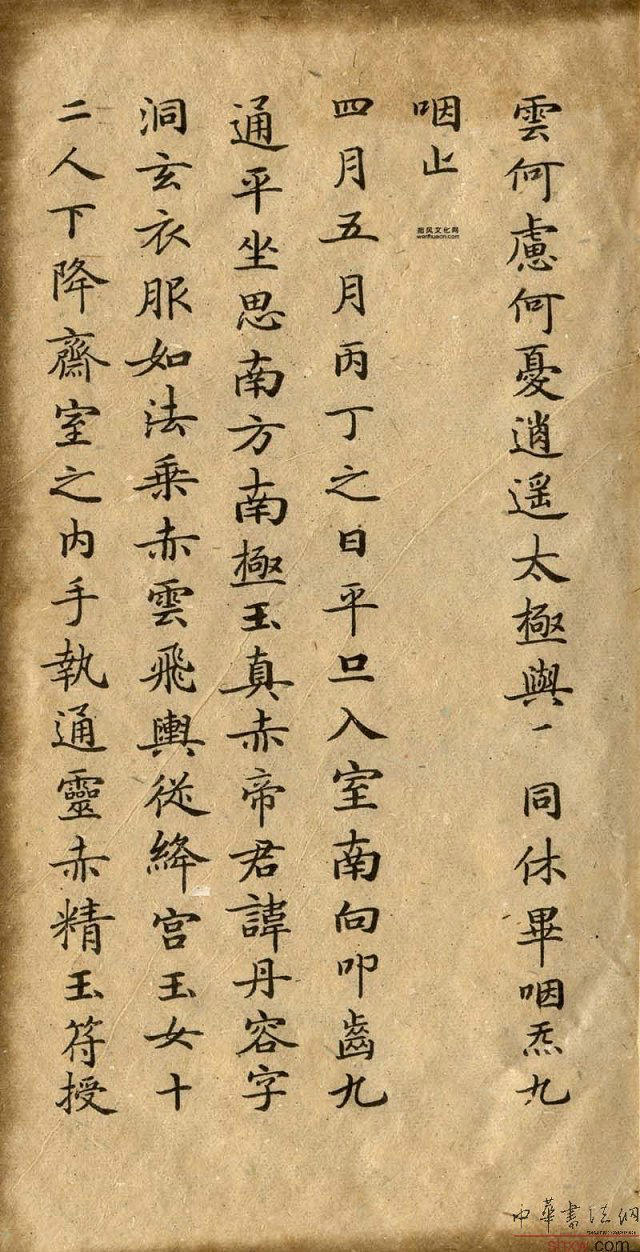 雲何慮何憂逍遥太極與一同休畢咽炁九
咽止
四月五月丙丁之日平旦入室南向叩齒九
通平坐思南方南極玉真赤帝君諱丹容字
洞玄衣服如法乗赤雲飛輿従絳宫玉女十
二人下降齋室之内手執通靈赤精玉符授
wenhuacn.com
中華書法網